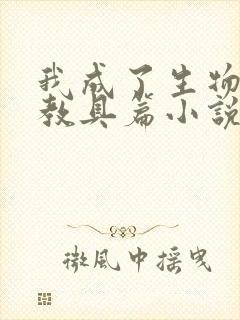 我成了生物
教具篇小說
微風中搖曳